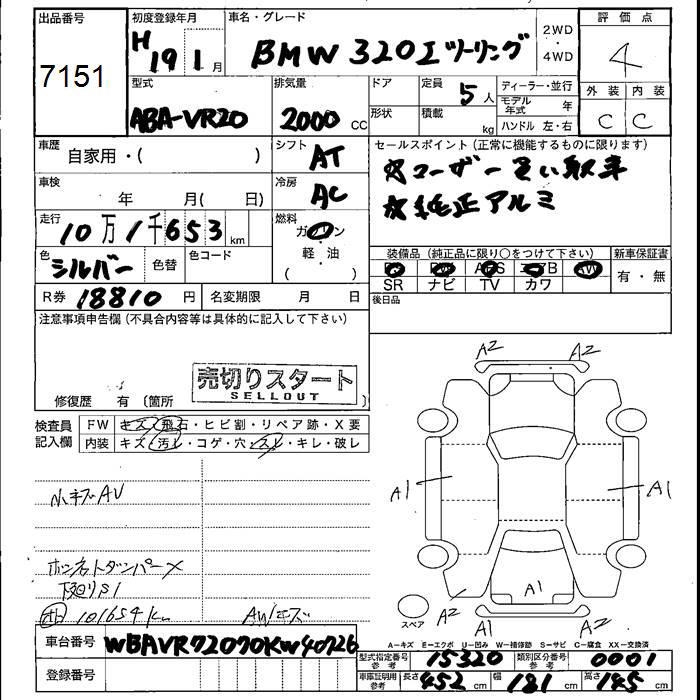 出品番号 初度登録年月 車名・グレード 2WD ・ 4WD 評価点
7151 H 19 1月 BMW 320I ツーリング 4
型式 排気量 ドア 定員 5人 ディーラー・並行 外装 内装
ABA-VR20 2000 CC 形状 積載 kg モデル年式 年 ハンドル 左・右 C C
車歴 自家用・( ) シフト AT セールスポイント(正常に機能するものに限ります)
車検 年 月( 日) 冷房 AC ☆ユーザー買い取車
走行 10万1千653km 燃料 ガソリン・軽・油 ( ) ☆純正アルミ
色 シルバー 色替 色コード 装備品(純正品に限り○をつけて下さい) 新車保証書
PS PW ABS エアB AW 有・無
SR ナビ TV カワ
R券 18810円 名変期限 月 日 後日品
注意事項申告欄(不具合内容等は具体的に記入して下さい)
売切りスタート
SELLOUT
修復歴 有(箇所 )
A2 A2
検査員記入欄 FW キズ・飛石・ヒビ割・リペア跡・X要
内装 キズ・汚レ・コゲ・穴・スレ・キレ・破レ
小キズAU
A1 A1
ボンネットダンパーX
下廻りS1
A1
101654km AWキズ
スペア A2 A1 A2
A=キズ E=エクボ U=凹み W=補修跡 S=サビ C=腐食 XX=交換済
車台番号 WBAVR72070KW40726
型式指定番号 参考 15320 類別区分番号 参考 0001
登録番号 車庫証明用 参考 長さ 452cm 幅 181cm 高さ 145cm